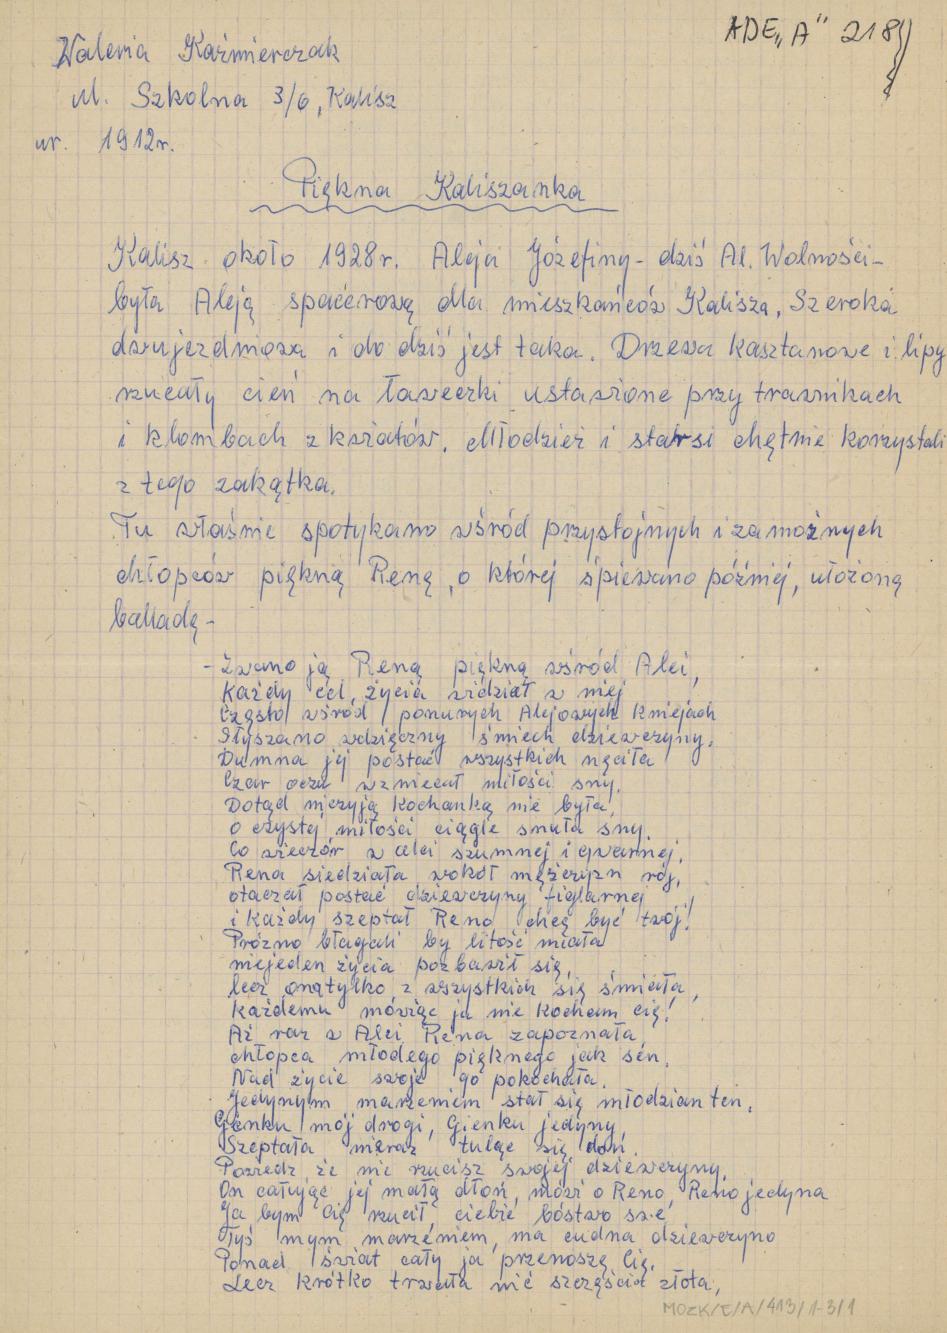 Waleria Kaźmierczak
ADE„A" 218
ul. Szkolna 3/6, Kalisz
ur. 1912r.
Piękna Kaliszanka
Kalisz około 1928r. Aleja Józefiny - dziś Al. Wolności -
była Aleją spacerową dla mieszkańców Kalisza. Szeroka
dwujezdniowa i do dziś jest taka. Drzewa kasztanowe i lipy
rzucały cień na ławeczki ustawione przy trawnikach
i klombach z kwiatów. Młodzież i starsi chętnie korzystali
z tego zakątka.
Tu właśnie spotykano wśród przystojnych i zamożnych
chłopców piękną Renę, o której śpiewano później, ułożoną
balladę -
- Zwano ją Reną piękną wśród Alei,
Każdy cel życia widział w niej
Często wśród ponurych Alejowych kniejach
Słyszano wdzięczny śmiech dziewczyny.
Dumna jej postać wszystkich nęciła
Czar oczu wzniecał miłości sny.
Dotąd niczyją kochanką nie była,
o czystej miłości ciągle snuła sny.
Co wieczór w alei szumnej i gwarnej,
Rena siedziała wokół mężczyzn rój,
otaczał postać dziewczyny figlarnej
i każdy szeptał Reno chcę być twój!
Próżno błagali by litość miała
niejeden życia pozbawił się,
lecz ona tylko z wszystkich się śmiała,
każdemu mówiąc ja nie kocham cię!
Aż raz w Alei Rena zapoznała
chłopca młodego pięknego jak sen.
Nad życie swoje go pokochała.
Jedynym marzeniem stał się młodzian ten.
Gienku mój drogi, Gienku jedyny,
Szeptała nieraz tuląc się doń.
Powiedz że nie rzucisz swojej dziewczyny,
On całując jej małą dłoń, mówi o Reno, Reno jedyna
Ja bym cię rzucił, ciebie bóstwo swe
Tyś mym marzeniem, ma cudna dziewczyno
Ponad świat cały ja przenoszę Cię.
Lecz krótko trwała nić szczęścia złota,
MOZK/E/A/413/1-3/1